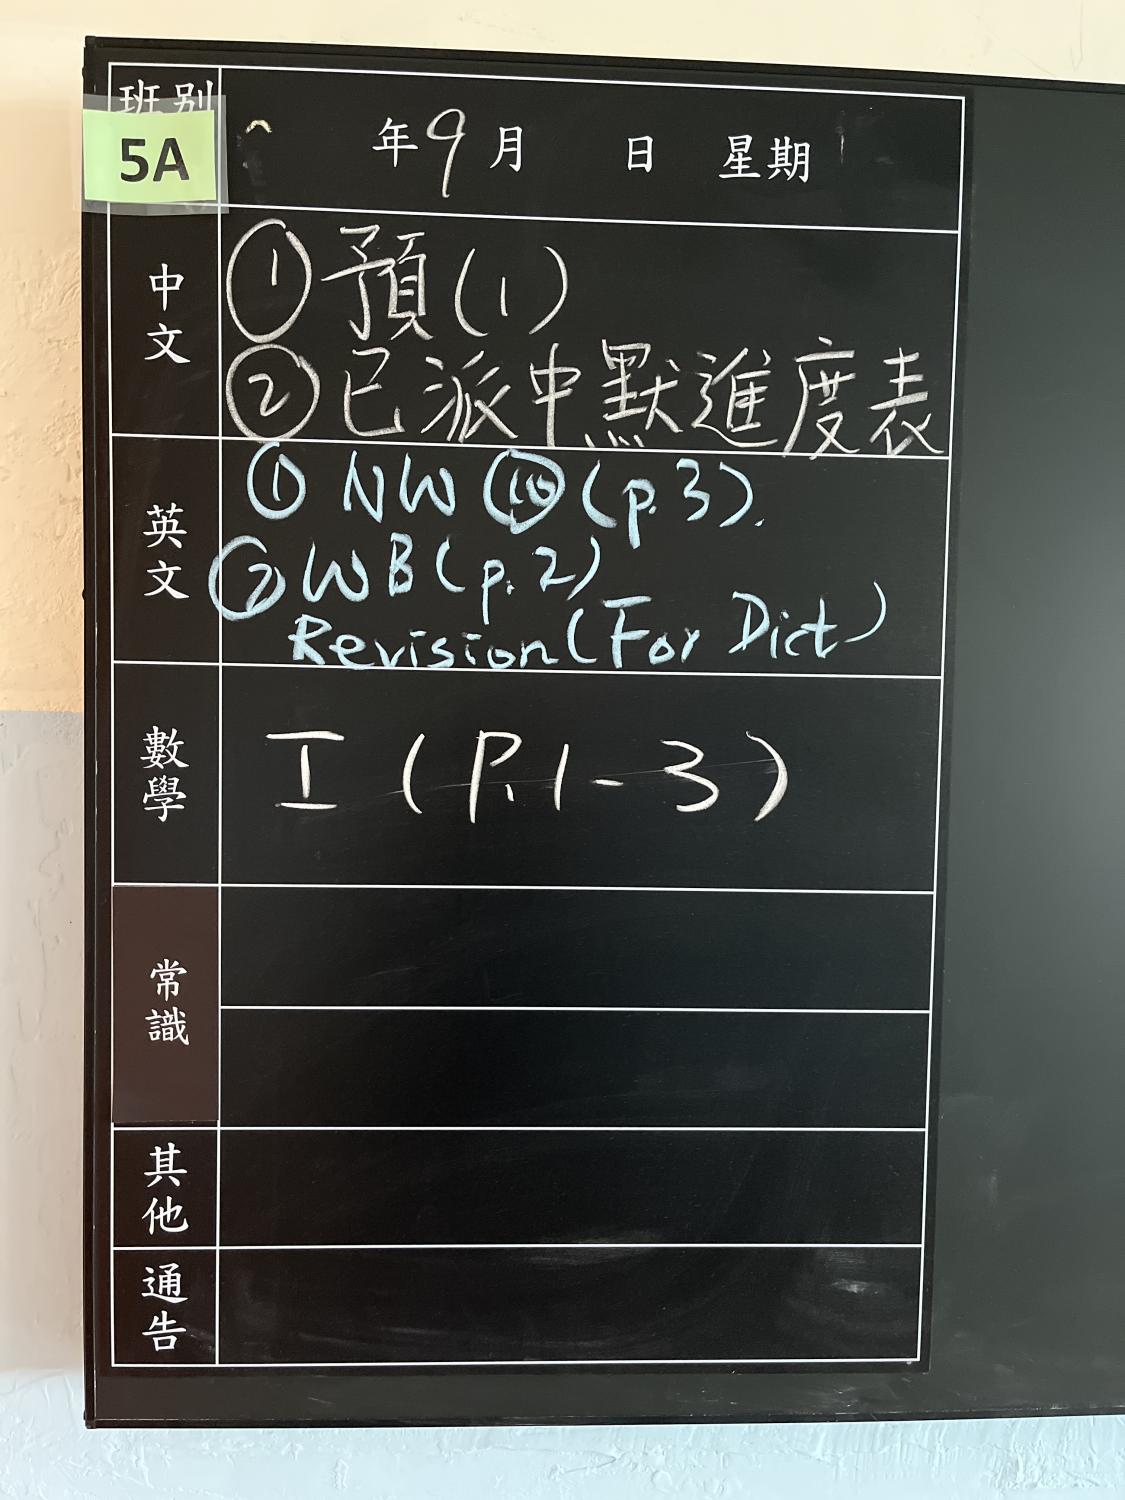 班別
5A
年9月 日 星期
中文
①預(1)
②已派中默進度表
英文
① NW (p.3).
② WB (p.2)
Revision (For Dict)
數學
I (P.1-3)
常識
其他
通告